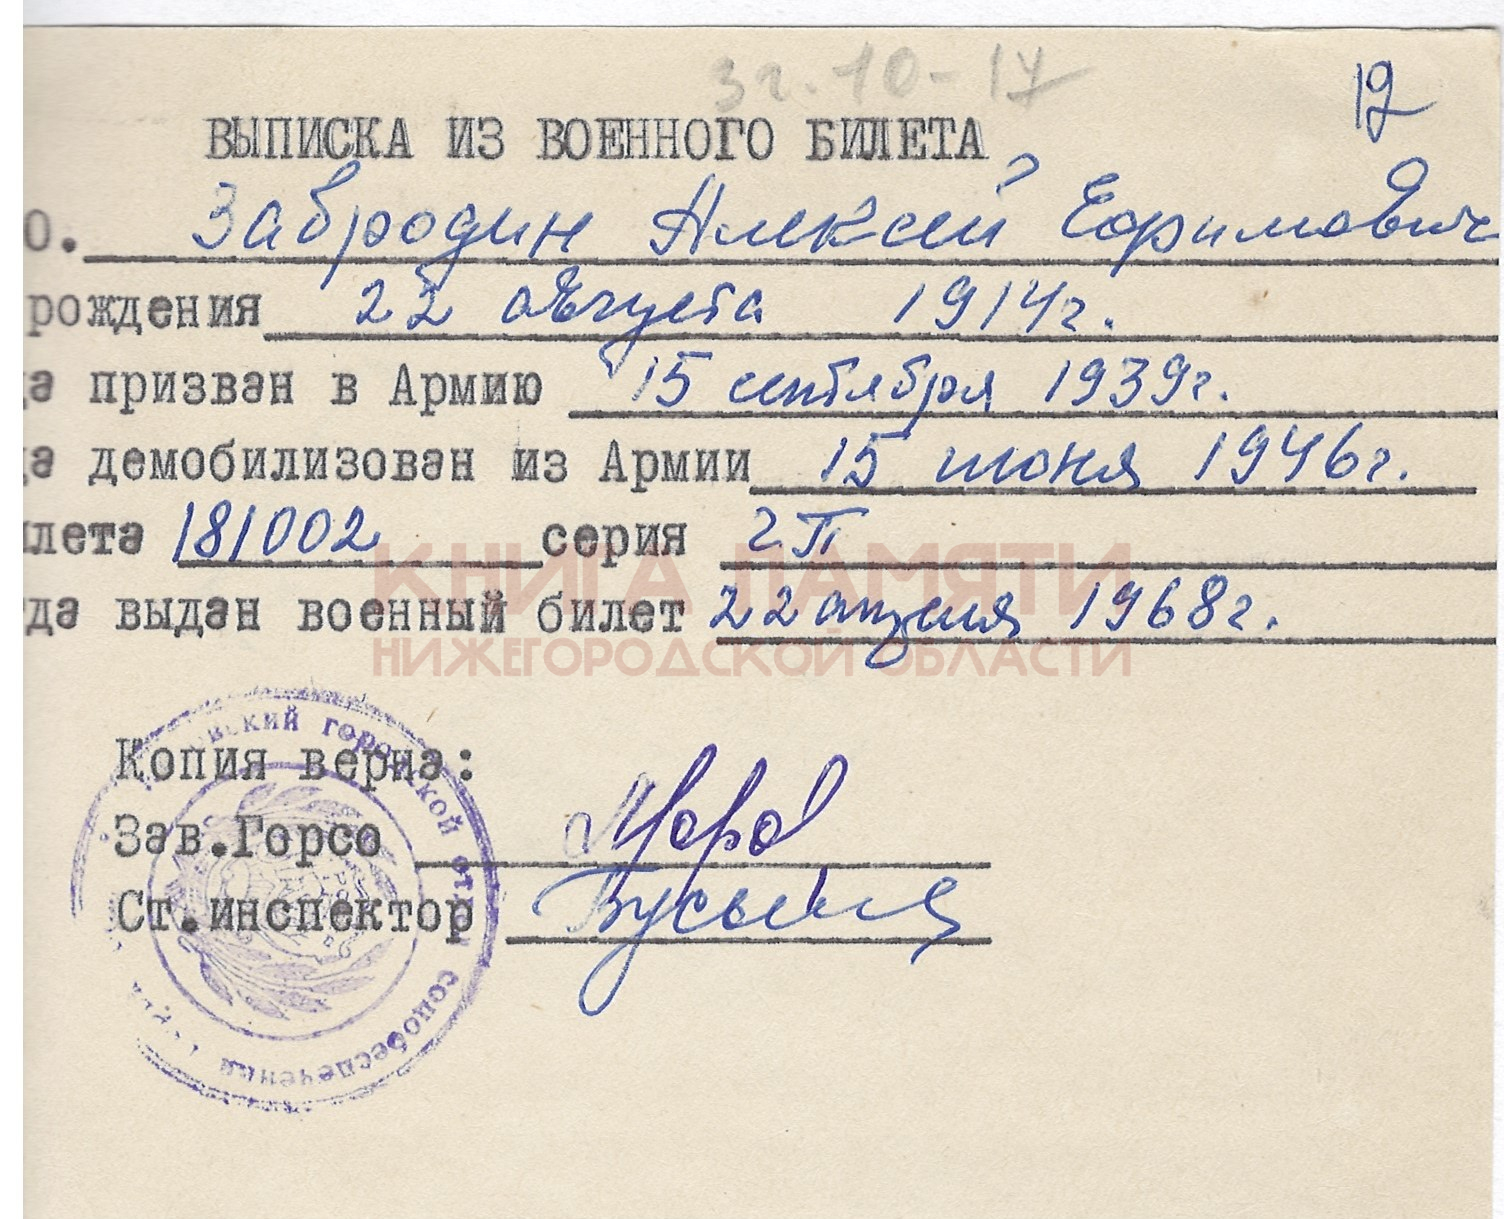 3г. 10-17
12
ВЫПИСКА ИЗ ВОЕННОГО БИЛЕТА
О. Забродин Алексей Ефимович
рождения 22 августа 1914г.
а призван в Армию 15 сентября 1939г.
а демобилизован из Армии 15 июня 1946г.
лета 181002 серия ГП
КНИГА ПАМЯТИ
да выдан военный билет 22 апреля 1968г.
НИЖЕГОРОДСКОЙ ОБЛАСТИ
вский городской отдел социобеспечения
Копия верна:
Зав.Горсо
Ст.инспектор